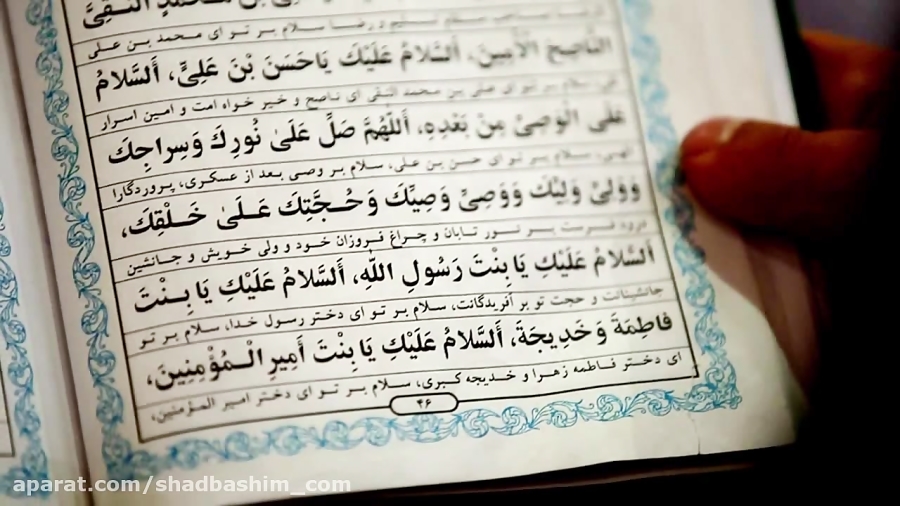 بن محمد التقی
سلام بر تو ای محمد بن علی
النّاصِحَ الْاَمینَ، اَلسَّلامُ عَلَیْکَ یَاحَسَنَ بْنَ عَلِیٍّ، اَلسَّلامُ
علی بن محمد النقی ای ناصح و خیر خواه امت و امین اسرار
عَلَی الْوَصِیِّ مِنْ بَعْدِهِ، اَللّهُمَّ صَلِّ عَلیٰ نُورِکَ وَسِراجِکَ
الهی، سلام بر تو ای حسن بن علی، سلام بر وصی بعد از عسکری، پروردگارا
وَوَلِیِّ وَلِیِّکَ وَوَصِیِّ وَصِیِّکَ وَحُجَّتِکَ عَلیٰ خَلْقِکَ،
درود فرست بر نور تابان و چراغ فروزان خود و ولی خویش و جانشین
اَلسَّلامُ عَلَیْکِ یَا بِنْتَ رَسُولِ اللهِ، اَلسَّلامُ عَلَیْکِ یَا بِنْتَ
جانشینانت و حجت تو بر آفریدگانت، سلام بر تو ای دختر رسول خدا، سلام بر تو
فاطِمَةَ وَخَدِیجَةَ، اَلسَّلامُ عَلَیْکِ یَا بِنْتَ اَمِیرِ الْمُؤْمِنِینَ،
ای دختر فاطمه زهرا و خدیجه کبری، سلام بر تو ای دختر امیر المؤمنین،
۴۶
aparat.com/shadbashim_com